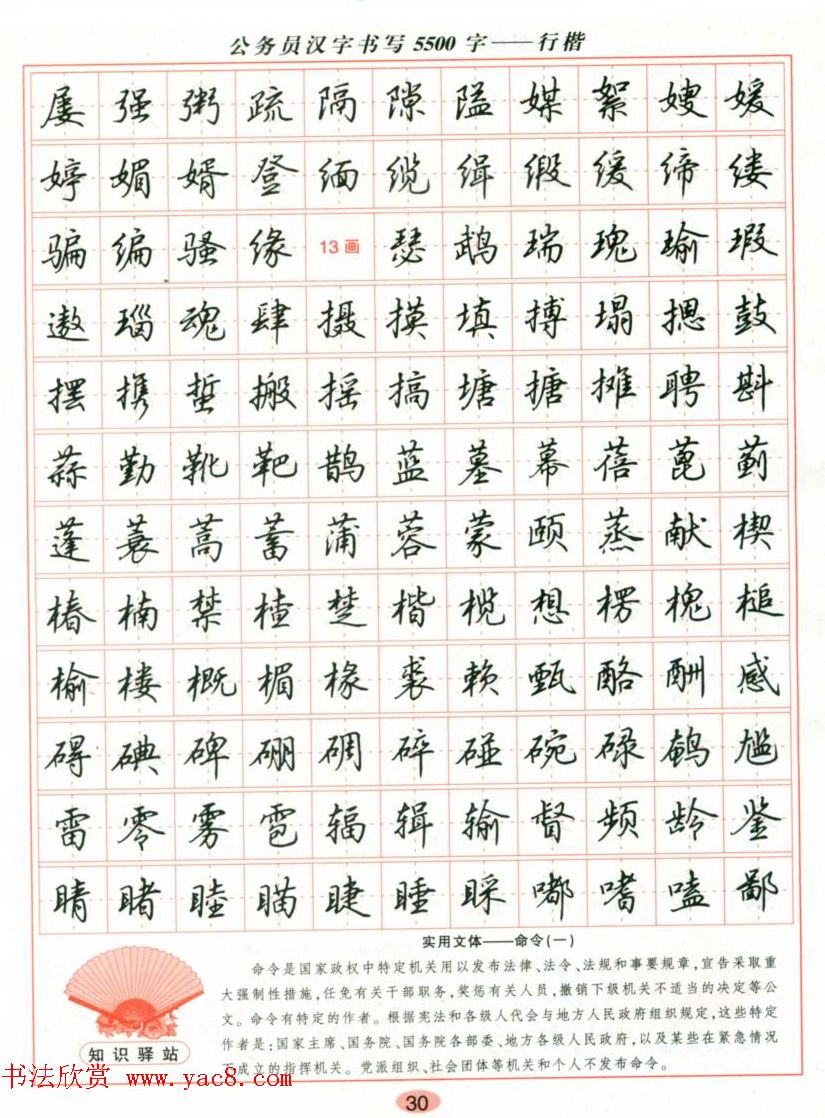 公务员汉字书写5500字——行楷
屡 强 粥 疏 隔 隙 隘 媒 絮 嫂 媛
婷 媚 婿 登 缅 缆 缉 缎 缓 缔 缕
骗 编 骚 缘 13画 瑟 鹉 瑞 瑰 瑜 瑕
遨 瑙 魂 肆 摄 摸 填 搏 塌 摁 鼓
摆 携 蜇 搬 摇 搞 塘 搪 摊 聘 斟
蒜 勤 靴 靶 鹊 蓝 墓 幕 蓓 蓖 蓟
蓬 蓑 蒿 蓄 蒲 蓉 蒙 颐 蒸 献 楔
椿 楠 禁 楂 楚 楷 榄 想 楞 槐 槌
榆 楼 概 楣 椽 裘 赖 甄 酪 酬 感
碍 碘 碑 硼 碉 碎 碰 碗 碌 鹌 尴
雷 零 雾 雹 辐 辑 输 督 频 龄 鉴
睛 睹 睦 瞄 睫 睡 睬 嘟 嗜 嗑 鄙
实用文体——命令(一)
命令是国家政权中特定机关用以发布法律、法令、法规和事要规章,宣告采取重
大强制性措施,任免有关干部职务,奖惩有关人员,撤销下级机关不适当的决定等公
文。命令有特定的作者。根据宪法和各级人代会与地方人民政府组织规定,这些特定
作者是:国家主席、国务院、国务院各部委、地方各级人民政府,以及某些在紧急情况
下成立的指挥机关。党派组织、社会团体等机关和个人不发布命令。
知识驿站
书法欣赏 www.yac8.com
30